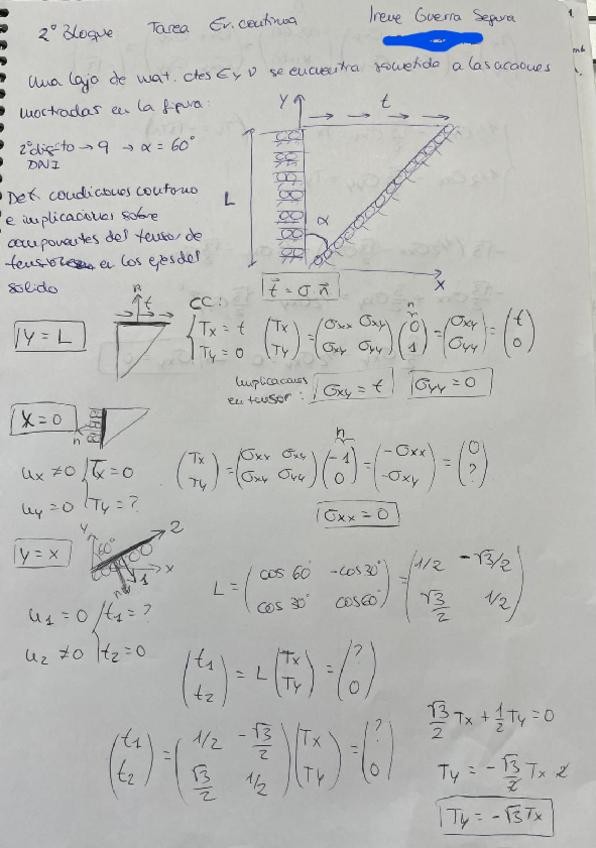 2º Bloque Tarea Ev. continua Irene Guerra Segura
1.
Una laja de mat. ctes E y ν se encuentra sometido a las acciones
mostradas en la figura:
2º digito → 9 → α = 60°
DNI
Det. condiciones contorno
e implicaciones sobre
componentes del tensor de
en los ejes del
solido
Y t
L α
X
t⃗ = σ.n⃗
Y = L
n t
CC:
{Tx = t
Ty = 0
(Tx Ty) = (σxx σxy σxy σyy) (0 1) = (σxy σyy) = (t 0)
n
Implicaciones
en tensor: σxy = t σyy = 0
X = 0
n
ux ≠ 0 {Tx = 0
uy = 0 {Ty = ?
(Tx Ty) = (σxx σxy σxy σyy) (-1 0) = (-σxx -σxy) = (0 ?)
n
σxx = 0
Y = x
Y 60° 2 x n 1
u1 = 0 {t1 = ?
u2 ≠ 0 {t2 = 0
L = (cos 60° -cos 30° cos 30° cos 60°) = (1/2 -√3/2 √3/2 1/2)
(t1 t2) = L (Tx Ty) = (? 0)
(t1 t2) = (1/2 -√3/2 √3/2 1/2) (Tx Ty) = (? 0)
√3/2 Tx + 1/2 Ty = 0
Ty = -√3/2 Tx 2
Ty = -√3 Tx